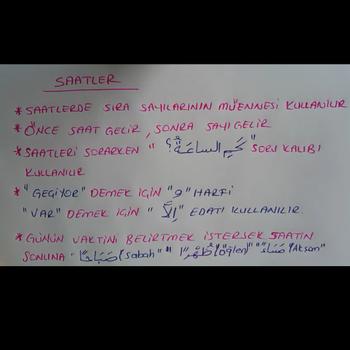 SAATLER
* SAATLERDE SIRA SAYILARININ MÜENNESİ KULLANILIR
* ÖNCE SAAT GELİR, SONRA SAYI GELİR
* SAATLERİ SORARKEN "كَمِ السَّاعَةُ؟" SORU KALIBI
KULLANILIR
* "GEÇİYOR" DEMEK İÇİN "و" HARFİ
"VAR" DEMEK İÇİN "إِلاَّ" EDATI KULLANILIR.
* GÜNÜN VAKTİNİ BELİRTMEK İSTERSEK SAATİN
SONUNA "صَبَاحًا (sabah)" "ظُهْرًا (öğlen)" "مَسَاءً (Akşam)"